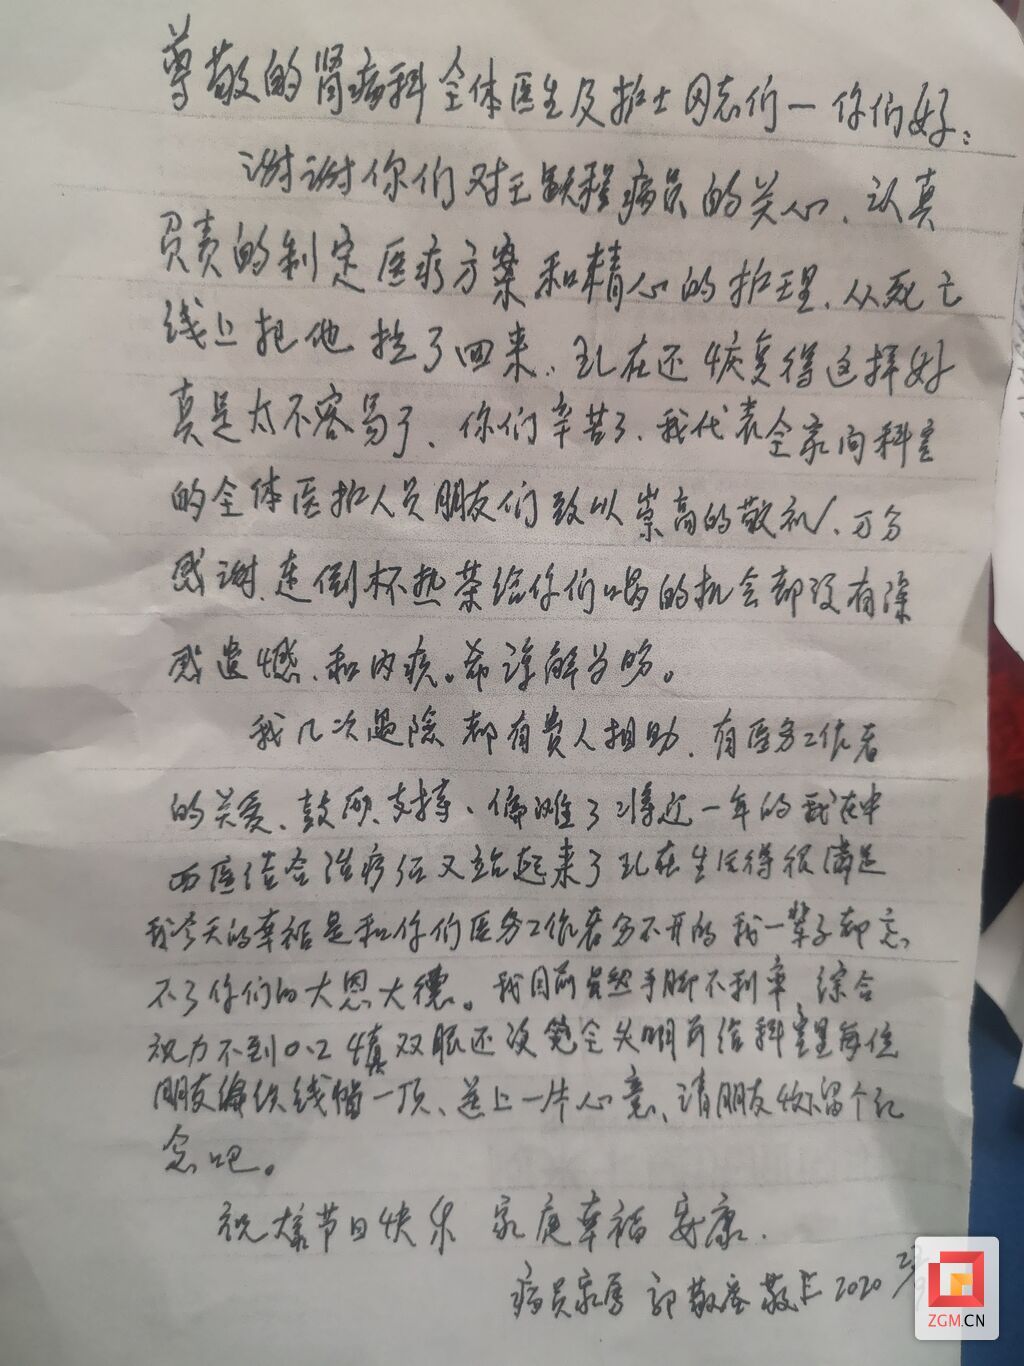 尊敬的肾病科全体医生及护士同志们一你们好：
谢谢你们对王跃程病员的关心、认真
负责的制定医疗方案和精心的护理、从死亡
线上把他抢了回来、现在还恢复得这样好
真是太不容易了、你们辛苦了、我代表全家向科室
的全体医护人员朋友们致以崇高的敬礼！、万分
感谢、连倒杯热茶给你们喝的机会都没有深
感遗憾、和内疚。希谅解为盼。
我几次遇险都有贵人相助、有医务工作者
的关爱、鼓励、支持、瘫了将近一年的我在中
西医结合治疗后又站起来了现在生活得很满足
我今天的幸福是和你们医务工作者分不开的我一辈子都忘
不了你们的大恩大德。我目前虽然手脚不利率 综合
视力不到0.2慎双眼还没完全失明前给科室里每位
朋友编织线帽一顶、送上一片心意、请朋友收下留个纪
念吧。
祝大家节日快乐 家庭幸福 安康.
病员家属 郭敬 敬上 2020
ZGM.CN